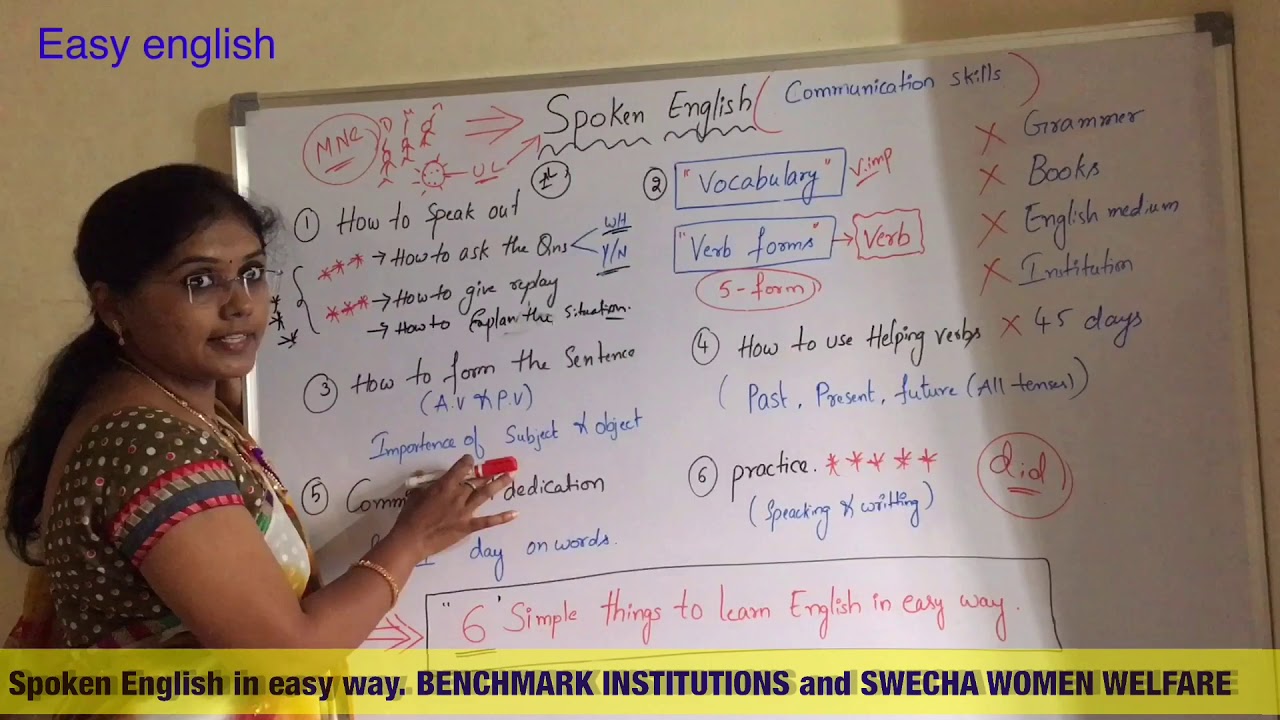 Easy english
Spoken English ( Communication skills )
MNC
UL
1st
① How to Speak out
*** → How to ask the Qns
WH
Y/N
*** → How to give replay
→ How to Explan the Situation.
② "Vocabulary" V.imp
"Verb forms" → Verb
5-form
③ How to form the Sentence
(A.V & P.V)
Importence of Subject & object
④ How to use Helping verbs
( Past, Present, future (All tenses))
⑤ dedication
day on words.
⑥ practice. *****
(Speacking & writting)
did
X Grammer
X Books
X English medium
X Institution
X 45 days
"6' Simple things to learn English in easy way.
Spoken English in easy way. BENCHMARK INSTITUTIONS and SWECHA WOMEN WELFARE